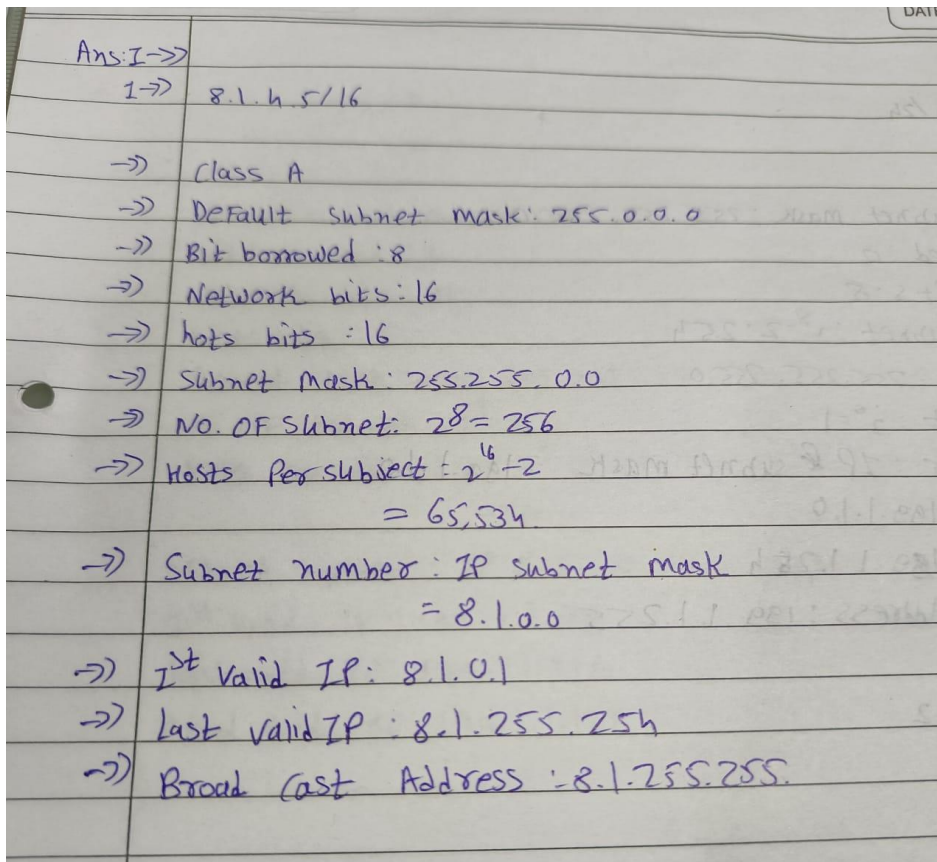 DATE
Ans:I->>
1->> 8.1.4.5/16
->> Class A
->> Default subnet mask: 255.0.0.0
->> Bit borrowed :8
->> Network bits:16
->> hots bits :16
->> Subnet Mask: 255.255.0.0
->> No. OF Subnet: 2⁸=256
->> Hosts Per subject : 2¹⁶-2
= 65,534
->> Subnet number: IP subnet mask
= 8.1.0.0
->> Ist valid IP: 8.1.0.1
->> Last valid IP : 8.1.255.254
->> Broad Cast Address :8.1.255.255.